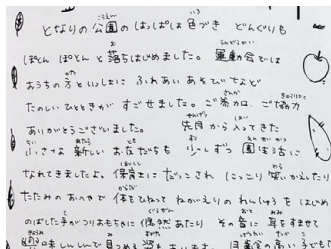 となりの公園のはっぱは色づき どんぐりも
ぽとん ぽとんと落ちはじめました。 運動会では
おうちの方といっしょに ふれあいあそびなど
たのしいひとときが すごせました。ご参加、ご協力
ありがとうございました。 先月から入ってきた
小さな 新しい お友だちも 少しずつ 園生活に
なれてきましたよ。保育士に だっこされ にっこり 笑いかえしたり
たたみのあやで 体をひねって ねがえりの れんしゅうを はじめ
のばした手がつりおもちゃに 偶然 あたり その音に 耳をすませて
興味しんしんで 見つめる 姿も あります。